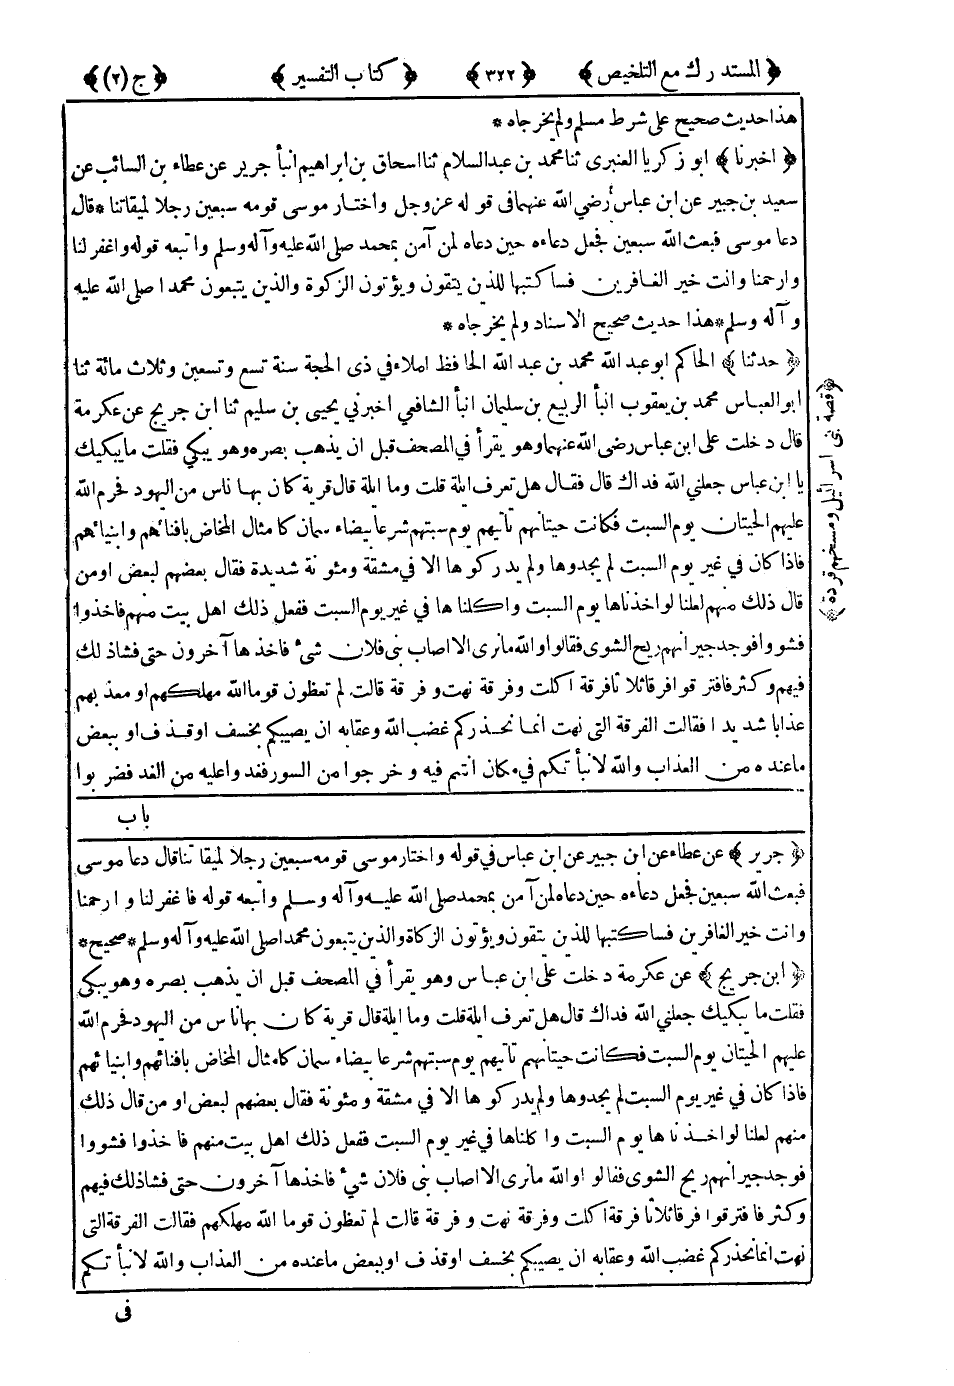 ﴿ المستدرك مع التلخيص ﴾ ﴿ ٣٢٢ ﴾ ﴿ كتاب التفسير ﴾ ﴿ ج (٢) ﴾
هذا حديث صحيح على شرط مسلم ولم يخرجاه *
﴿ اخبرنا ﴾ ابو زكريا العنبرى ثنا محمد بن عبد السلام ثنا اسحاق بن ابراهيم انبأ جرير عن عطاء بن السائب عن
سعيد بن جبير عن ابن عباس رضي الله عنهما فى قوله عز وجل واختار موسى قومه سبعين رجلا لميقاتنا * قال
دعا موسى فبعث الله سبعين فجعل دعاءه حين دعاه لمن آمن بمحمد صلى الله عليه وآله وسلم واتبعه قوله واغفر لنا
وارحمنا وانت خير الغافرين فساكتبها للذين يتقون ويؤتون الزكوة والذين يتبعون محمدا صلى الله عليه
وآله وسلم * هذا حديث صحيح الاسناد ولم يخرجاه *
﴿ حدثنا ﴾ الحاكم ابو عبد الله محمد بن عبد الله الحافظ املاء في ذى الحجة سنة تسع وتسعين وثلاث مائة ثنا
ابو العباس محمد بن يعقوب انبأ الربيع بن سليمان انبأ الشافعي اخبرني يحيى بن سليم ثنا ابن جريج عن عكرمة
قال دخلت على ابن عباس رضى الله عنهما وهو يقرأ في المصحف قبل ان يذهب بصره وهو يبكي فقلت ما يبكيك
يا ابن عباس جعلني الله فداك قال فقال هل تعرف ايلة قلت وما ايلة قال قرية كان بها ناس من اليهود فحرم الله
عليهم الحيتان يوم السبت فكانت حيتانهم تأتيهم يوم سبتهم شرعا بيضاء سمان كامثال المخاض بافنائهم وابنيائهم
فاذا كان في غير يوم السبت لم يجدوها ولم يدركوها الا في مشقة ومئونة شديدة فقال بعضهم لبعض او من
قال ذلك منهم لعلنا لو اخذناها يوم السبت واكلناها في غير يوم السبت ففعل ذلك اهل بيت منهم فاخذوا
فشووا فوجد جيرانهم ريح الشوى فقالوا والله ما نرى الا اصاب بنى فلان شئ فاخذها آخرون حتى فشا ذلك
فيهم وكثر فافترقوا فرقا ثلاثا فرقة اكلت وفرقة نهت وفرقة قالت لم تعظون قوما الله مهلكهم او معذبهم
عذابا شديدا فقالت الفرقة التى نهت انما نحذركم غضب الله وعقابه ان يصيبكم بخسف او قذف او ببعض
ما عنده من العذاب والله لا نبأتكم في مكان انتم فيه وخرجوا من السور فغدوا عليه من الغد فضربوا
﴿ قصة بنى اسرائيل ومسخهم قردة ﴾
باب
﴿ جرير ﴾ عن عطاء عن ابن جبير عن ابن عباس في قوله واختار موسى قومه سبعين رجلا لميقاتنا قال دعا موسى
فبعث الله سبعين فجعل دعاءه حين دعاه لمن آمن بمحمد صلى الله عليه وآله وسلم واتبعه قوله فاغفر لنا وارحمنا
وانت خير الغافرين فساكتبها للذين يتقون ويؤتون الزكاة والذين يتبعون محمدا صلى الله عليه وآله وسلم * صحيح *
﴿ ابن جريج ﴾ عن عكرمة دخلت على ابن عباس وهو يقرأ في المصحف قبل ان يذهب بصره وهو يبكى
فقلت ما يبكيك جعلني الله فداك قال هل تعرف ايلة قلت وما ايلة قال قرية كان بها ناس من اليهود فحرم الله
عليهم الحيتان يوم السبت فكانت حيتانهم تأتيهم يوم سبتهم شرعا بيضاء سمان كامثال المخاض بافنائهم وابنيائهم
فاذا كان في غير يوم السبت لم يجدوها ولم يدركوها الا في مشقة ومئونة فقال بعضهم لبعض او من قال ذلك
منهم لعلنا لو اخذناها يوم السبت واكلناها في غير يوم السبت ففعل ذلك اهل بيت منهم فاخذوا فشووا
فوجد جيرانهم ريح الشوى فقالوا والله ما نرى الا اصاب بنى فلان شئ فاخذها آخرون حتى فشا ذلك فيهم
وكثر فافترقوا فرقا ثلاثا فرقة اكلت وفرقة نهت وفرقة قالت لم تعظون قوما الله مهلكهم فقالت الفرقة التى
نهت انما نحذركم غضب الله وعقابه ان يصيبكم بخسف او قذف او ببعض ما عنده من العذاب والله لا نبأتكم
فى